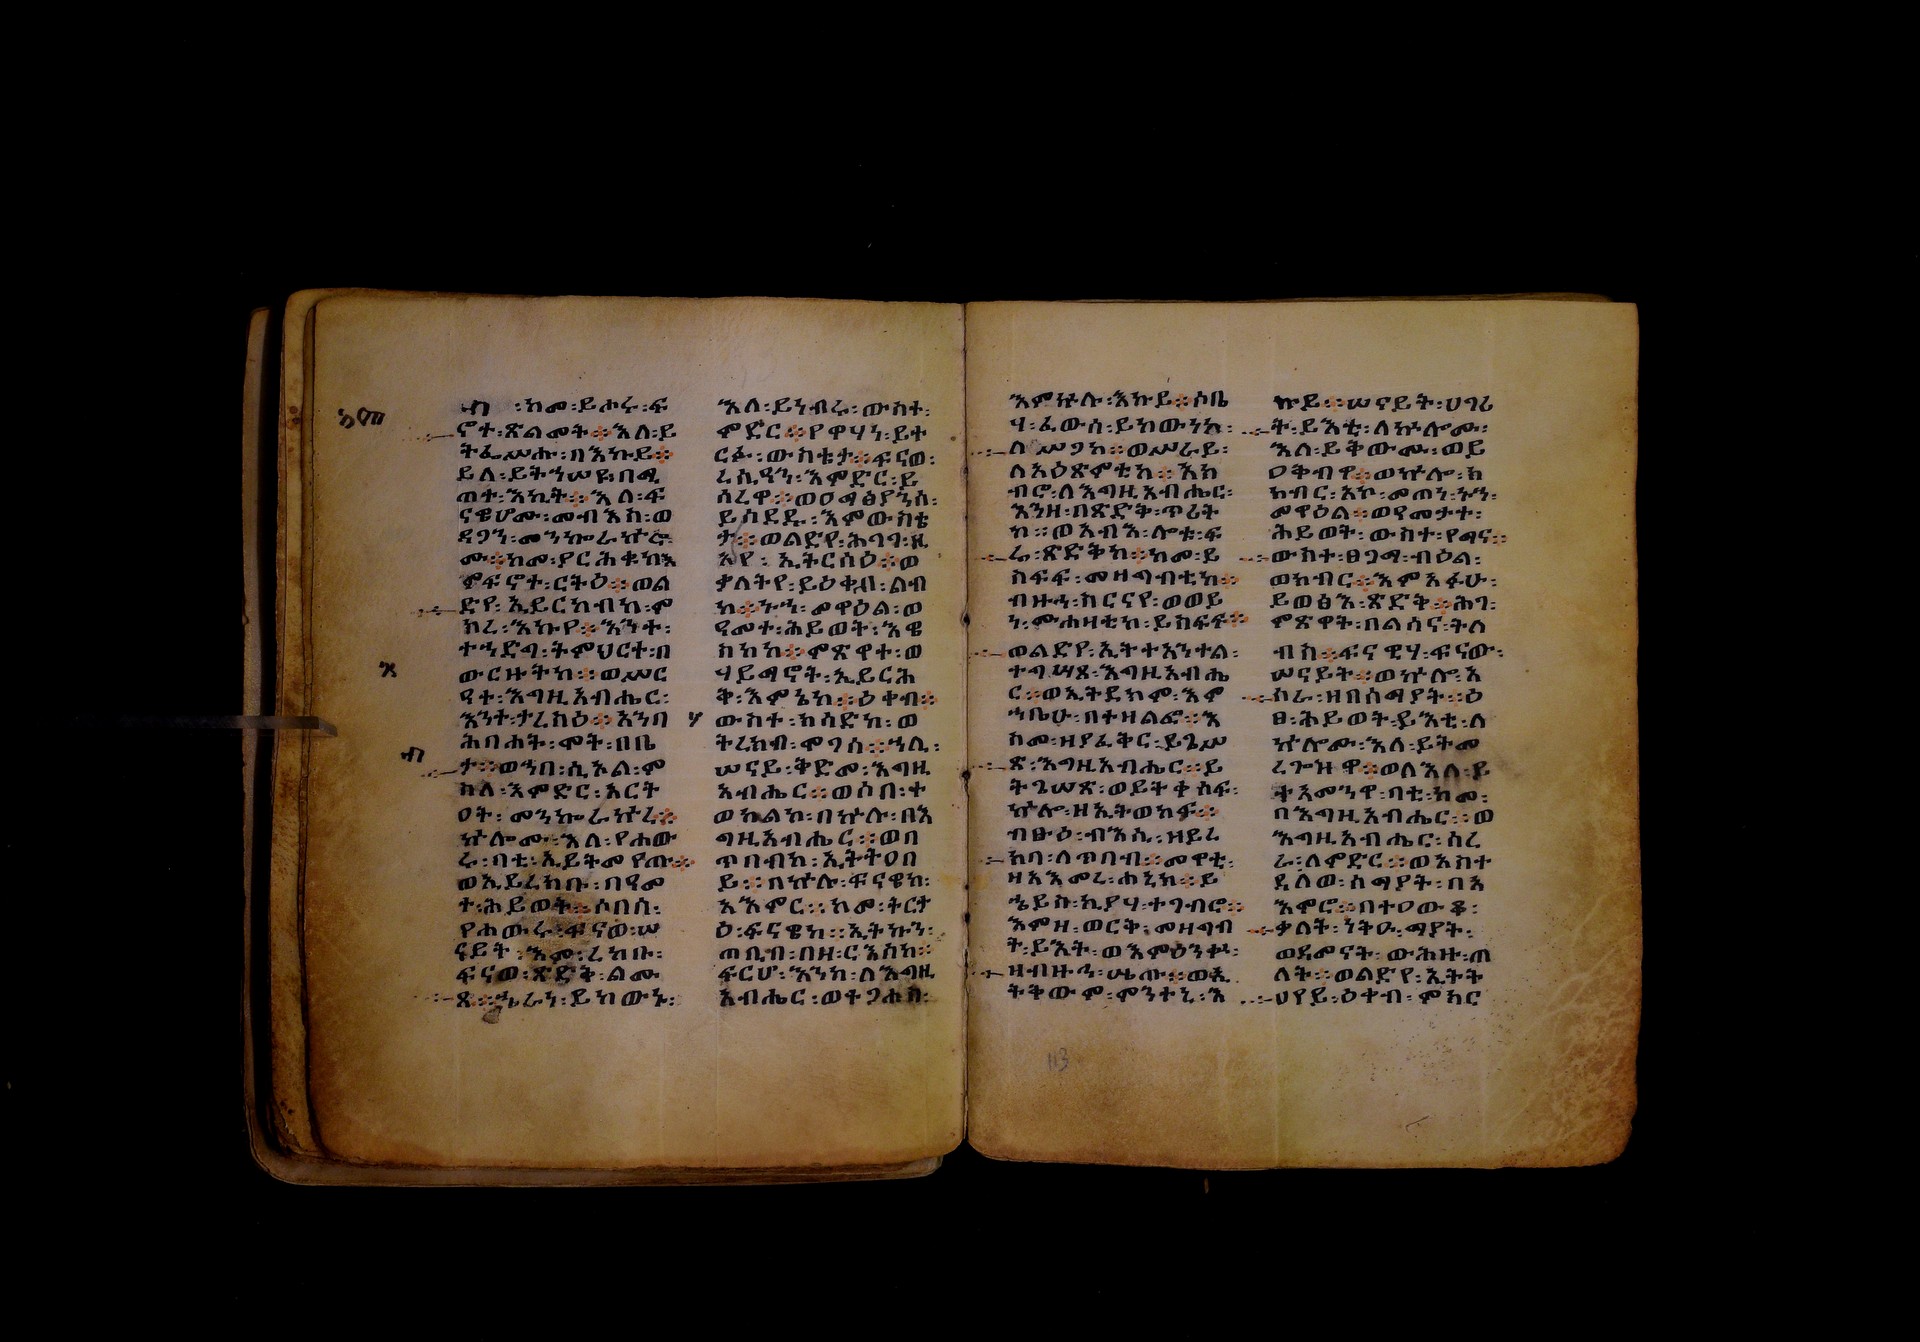 ከመ፡ይሑሩ፡ፍ
ኖተ፡ጽልመት፨እለ፡ይ
ትፌሥሑ፡በእኩይ፨
ይል፡ይትኀሠዩ፡በዲ
ወተ፡እኪት፨እለ፡ፍ
ናዊሆሙ፡መብእስ፡ወ
ዳጋን፡መንኰራኵሮ
ሙ፨ከመ፡ያርሕቁከእ
ምፍኖተ፡ርትዕ፨ወል
ድየ፡ኢይርከብከ፡ም
ክረ፡እኩየ፨እንተ፡
ተኀድግ፡ትምህርተ፡በ
ውርዙትከ፨ወሥር
ዓተ፡እግዚአብሔር፡
እንተ፡ታረክዕ፨እንበ
ሕበሐት፡ሞት፡በቤ
ታ፨ወኀበ፡ሲኦል፡ም
ስለ፡እምድር፡እርት
ዐት፡መንኰራኵረ፨
ኵሎሙ፡እለ፡የሐው
ሩ፡ባቲ፡ኢይትመየጡ፨
ወኢይረክቡ፡በዓመ
ተ፡ሕይወት፨ሶበሰ፡
የሐውሩ፡ፍናወ፡ሠ
ናይት፡እመ፡ረከቡ፡
ፍናወ፡ጽድቅ፡ልሙ
ጸ፨ኄራን፡ይከውኑ፡
እለ፡ይነብሩ፡ውስተ፡
ምድር፨የዋሃን፡ይተ
ርፉ፡ውስቴታ፨ፍናወ፡
ረሲዓን፡እምድር፡ይ
ሰረዋ፨ወዐማፅያንሰ፡
ይሰደዱ፡እምውስቴ
ታ፨ወልድየ፡ሕገገ፡ዚ
አየ፡ኢትርሳዕ፨ወ
ቃለትየ፡ይዕቀብ፡ልብ
ከ፨ኑኀ፡መዋዕል፡ወ
ዓመተ፡ሕይወት፡እዌ
ስከከ፨ምጽዋተ፡ወ
ሃይማኖት፡ኢይርሕ
ቅ፡እምኔከ፨ዕቀብ፨
ውስተ፡ከሳድከ፡ወ
ትረክብ፡ሞገሰ፨ኀሊ፡
ሠናይ፡ቅድመ፡እግዚ
አብሔር፨ወሶበ፡ተ
ወከልኮ፡በኵሉ፡በእ
ግዚአብሔር፨ወበ
ጥበብከ፡ኢትትዐበ
ይ፨በኵሉ፡ፍናዊከ፡
አእምር፨ከመ፡ትርታ
ዕ፡ፍናዊከ፨ኢትኩን፡
ጠቢብ፡በዘ፡ርእስከ፨
ፍርሆ፡እንከ፡ለእግዚ
አብሔር፡ወተጋሐስ፡
እምኵሉ፡እኩይ፨ሶቤ
ሃ፡ፈውሰ፡ይከውነከ፡
ለሥጋከ፨ወሥራይ፡
ለአዕጽምቲከ፨አክ
ብሮ፡ለእግዚአብሔር፡
እንዘ፡በጽድቅ፡ጥሪት
ከ፨ወአብእ፡ሎቱ፡ፍ
ሬ፡ጽድቅከ፨ከመ፡ይ
ስፍፍ፡መዛግብቲከ፨
ብዙኀ፡ስርናየ፡ወወይ
ነ፡ሙሐዛቲከ፡ይከፍፍ፨
ወልድየ፡ኢትተአንተል፡
ተግሣጸ፡እግዚአብሔ
ር፨ወኢትደክም፡እም
ኀቤሁ፡በተዛልፎ፨እ
ስመ፡ዘያፈቅር፡ይጌሥ
ጽ፡እግዚአብሔር፨ይ
ትጌሠጽ፡ወይትቀሰፍ፡
ኵሎ፡ዘኢትወከፍ፨
ብፁዕ፡ብእሲ፡ዘይረ
ከባ፡ለጥበብ፨መዋቲ፡
ዘአእመረ፡ሐኒከ፨ይ
ኄይስ፡ኪያሃ፡ተገብሮ፨
እምዘ፡ወርቅ፡መዛግብ
ት፡ይእት፡ወእምዕንቍ፡
ዘብዙኅ፡ሤጡ፨ወኢ
ትቅውም፡ምንተኒ፡እ
ኩይ፨ሠናይት፡ሀገሪ
ት፡ይእቲ፡ለኵሎሙ፡
እለ፡ይቀውሙ፡ወይ
ዐቅብዋ፨ወኵሎ፡ክ
ክብር፡አኮ፡መጠነ፡ኑኀ፡
መዋዕል፨ወዓመታተ፡
ሕይወት፡ውስተ፡የማና፨
ውስተ፡ፀጋማ፡ብዕል፡
ወክብር፨እምአፉሁ፡
ይወፅእ፡ጽድቅ፨ሕገ፡
ምጽዋት፡በልሳና፡ትለ
ብስ፨ፍናዊሃ፡ፍናው፡
ሠናይት፨ወኵሎ፡አ
ሰራ፡ዘበሰማያት፨ዕ
ፀ፡ሕይወት፡ይእቲ፡ለ
ኵሎሙ፡እለ፡ይትመ
ረጐዝዋ፨ወለእለ፡ይ
ትአመንዋ፡ባቲ፡ከመ፡
በእግዚአብሔር፨ወ
እግዚአብሔር፡ሰረ
ራ፡ለምድር፨ወአስተ
ዴለወ፡ሰማያት፡በአ
እምሮ፨በተዐውቆ፡
ቃለት፡ነትዑ፡ማያት፡
ወደመናት፡ውሕዙ፡ጠ
ለት፨ወልድየ፡ኢትት
ሀየይ፡ዕቀብ፡ምክር
113